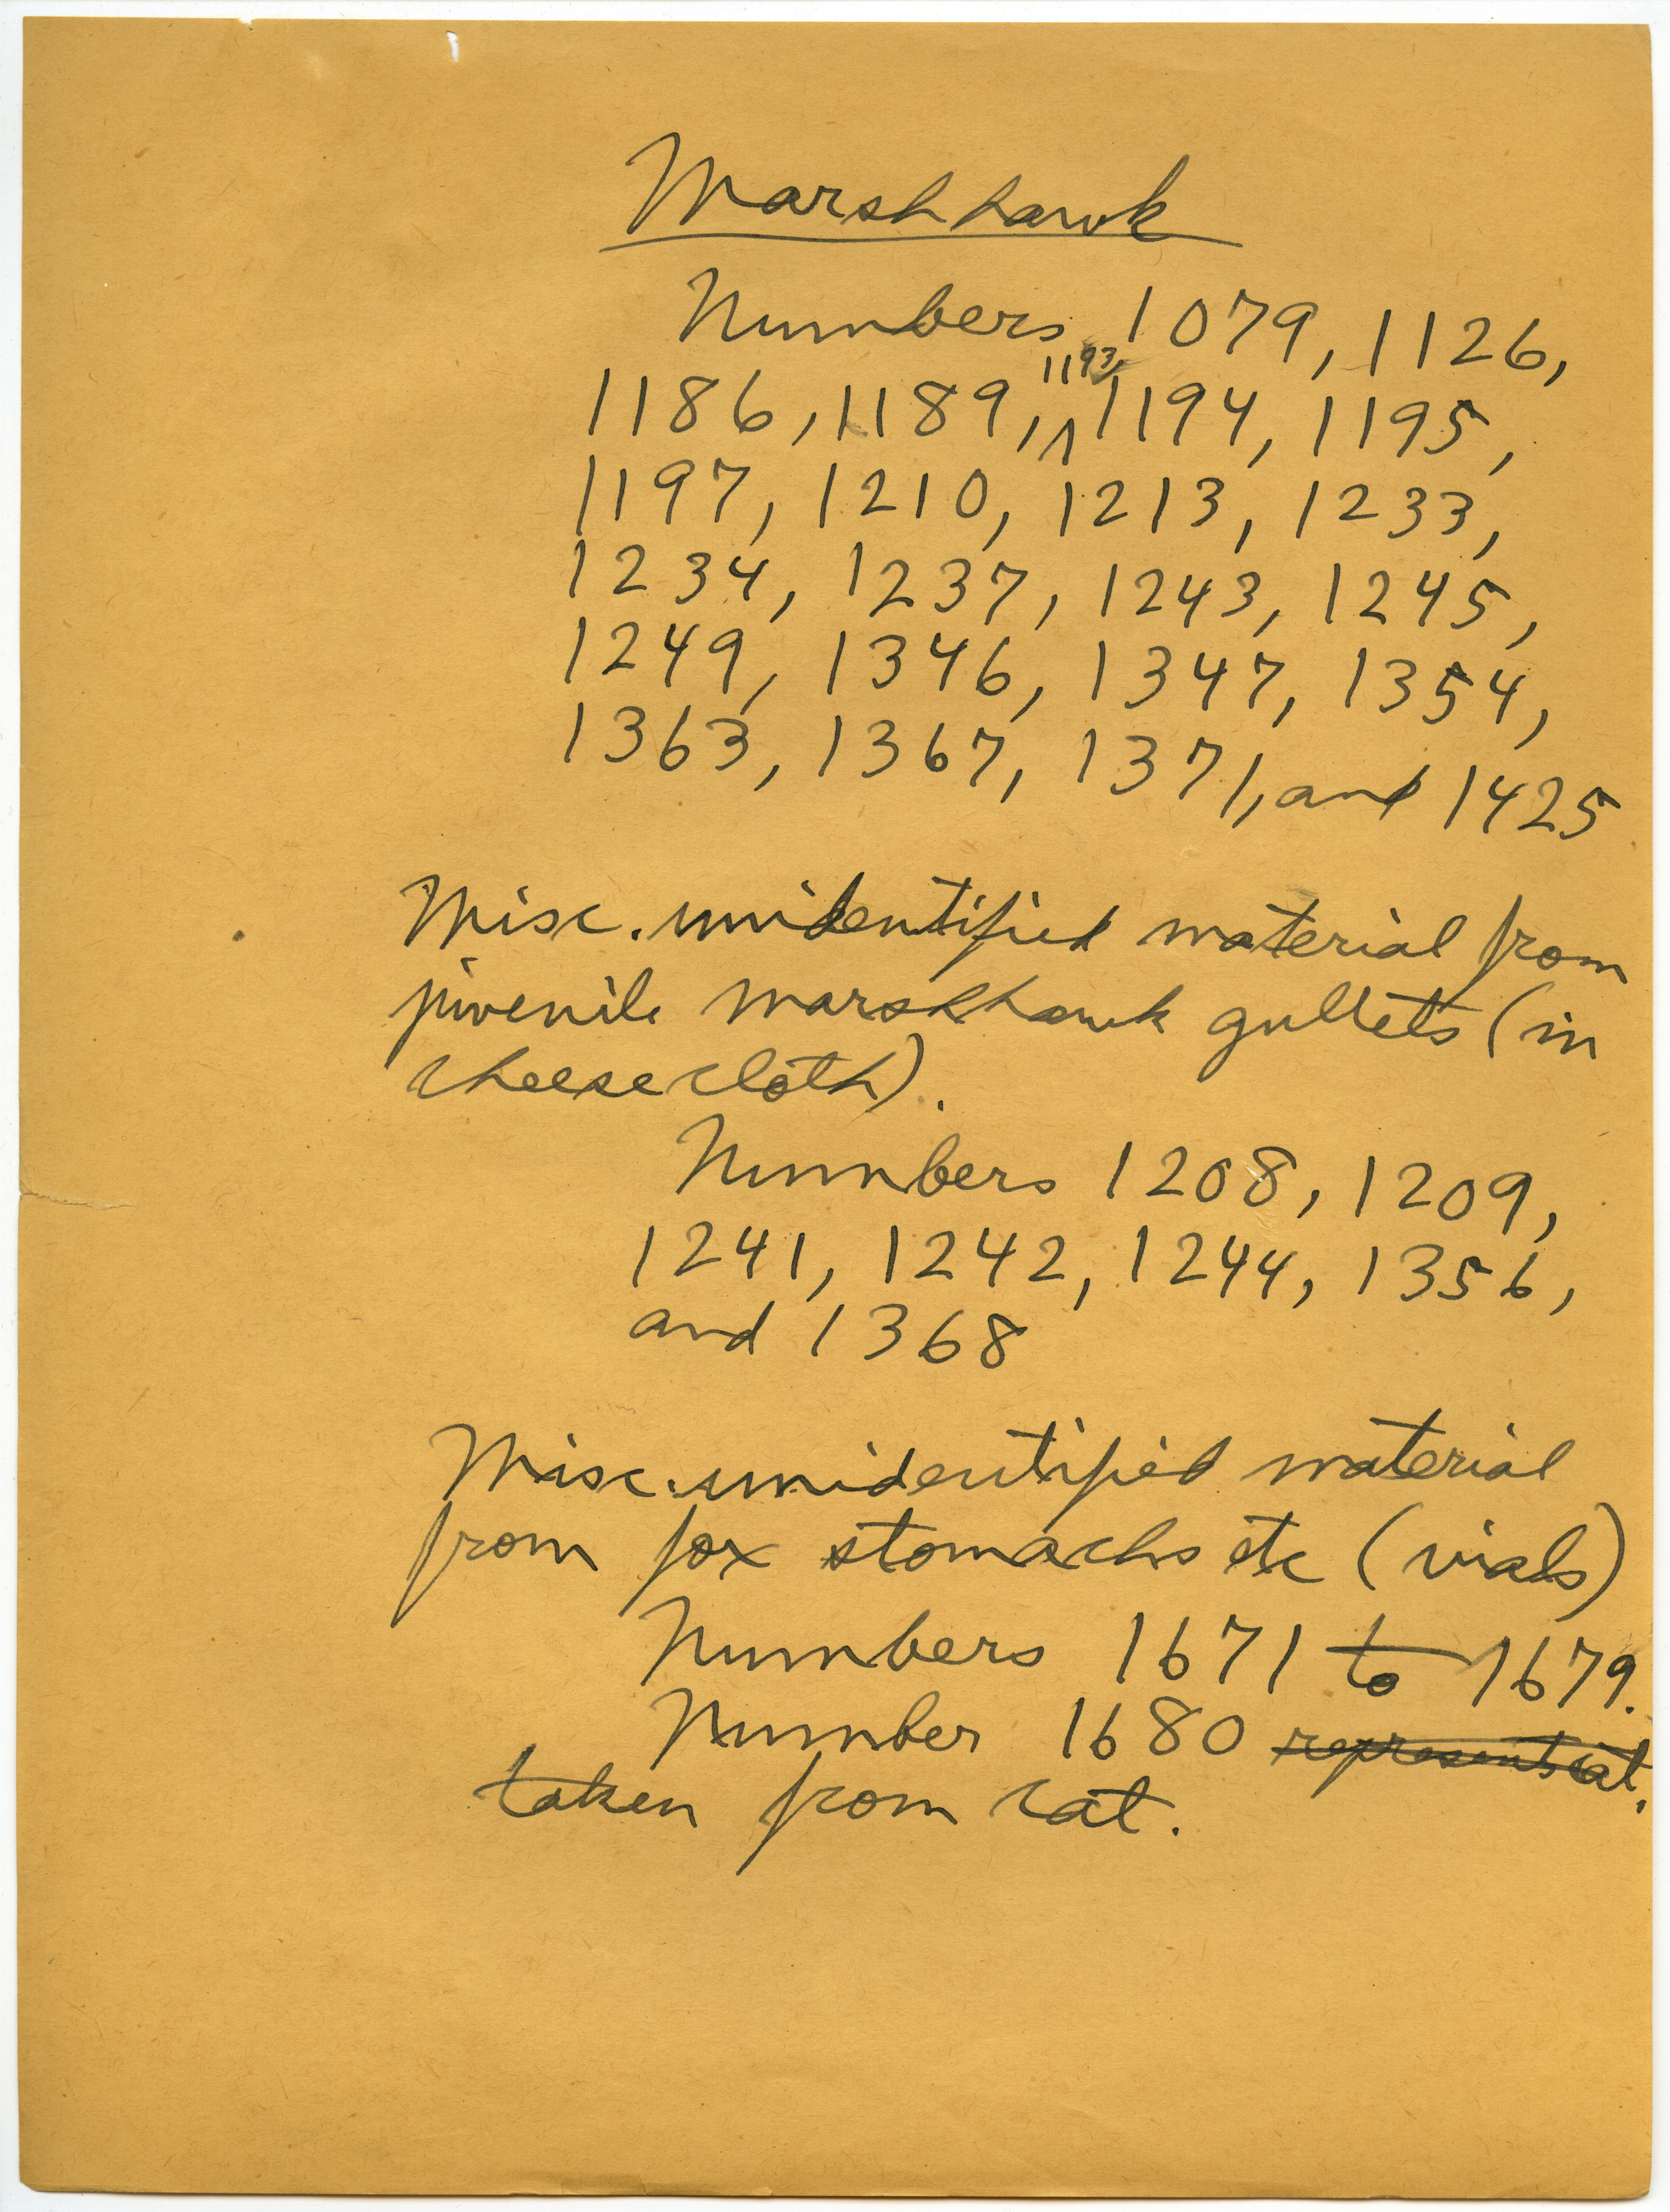 Marshhawk
Numbers 1079, 1126,
1186, 1189, 1193, 1194, 1195,
1197, 1210, 1213, 1233,
1234, 1237, 1243, 1245,
1249, 1346, 1347, 1354,
1363, 1367, 1371, and 1425
Misc. unidentified material from
juvenile marshhawk gullets (in
cheesecloth).
Numbers 1208, 1209,
1241, 1242, 1244, 1356,
and 1368
Misc. unidentified material
from fox stomachs etc (vials)
Numbers 1671 to 1679.
Number 1680 represents cat.
taken from cat.